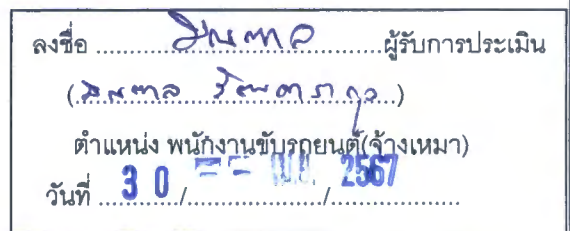 ลงชื่อ ........................ผู้รับการประเมิน
(........................)
ตำแหน่ง พนักงานขับรถยนต์(จ้างเหมา)
วันที่ ...30.../... เม.ย. .../...2567...